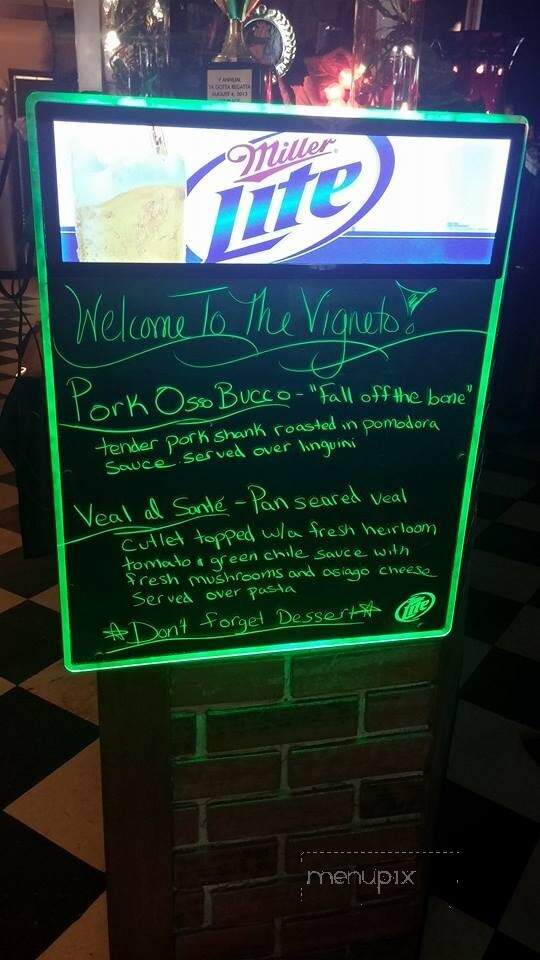 1ST ANNUAL
YA GOTTA REGATTA
AUGUST 4, 2013
Miller
Lite
Welcome To The Vigneto!
Pork Osso Bucco - "Fall off the bone"
tender pork shank roasted in pomodora
sauce. served over linguini
Veal al Santé - Pan seared veal
cutlet topped w/a fresh heirloom
tomato & green chile sauce with
fresh mushrooms and asiago cheese
Served over pasta
Don't forget Dessert
Lite
menupix